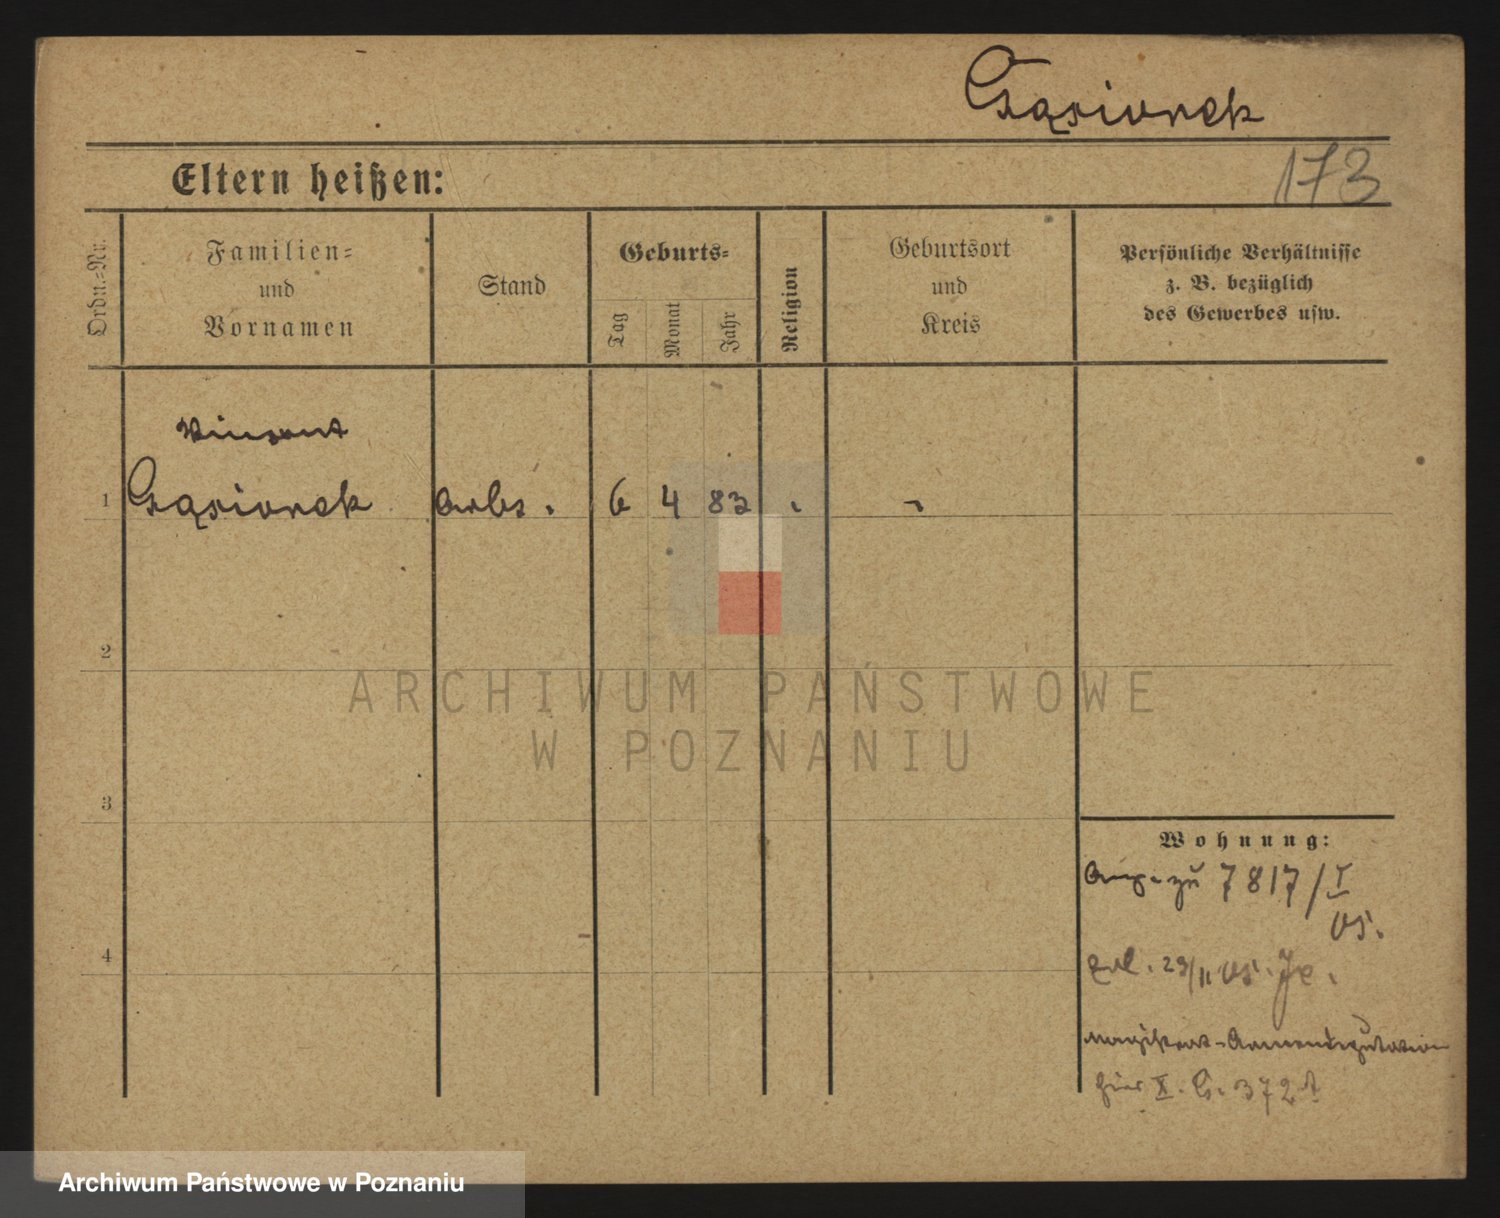 Gąsiorek
173
Eltern heißen:
Ordn.-Nr.
Familien-
und
Vornamen
Stand
Geburts-
Tag
Monat
Jahr
Religion
Geburtsort
und
Kreis
Persönliche Verhältnisse
z. B. bezüglich
des Gewerbes usw.
Vincent
1 Gąsiorek Arbr. 6 4 83
2
ARCHIWUM PAŃSTWOWE
W POZNANIU
3
Wohnung:
Ang. zu 7817/I
05.
4
erl. 29/11 05.
Magistrat-Armendeputation
hier X. G. 372
Archiwum Państwowe w Poznaniu